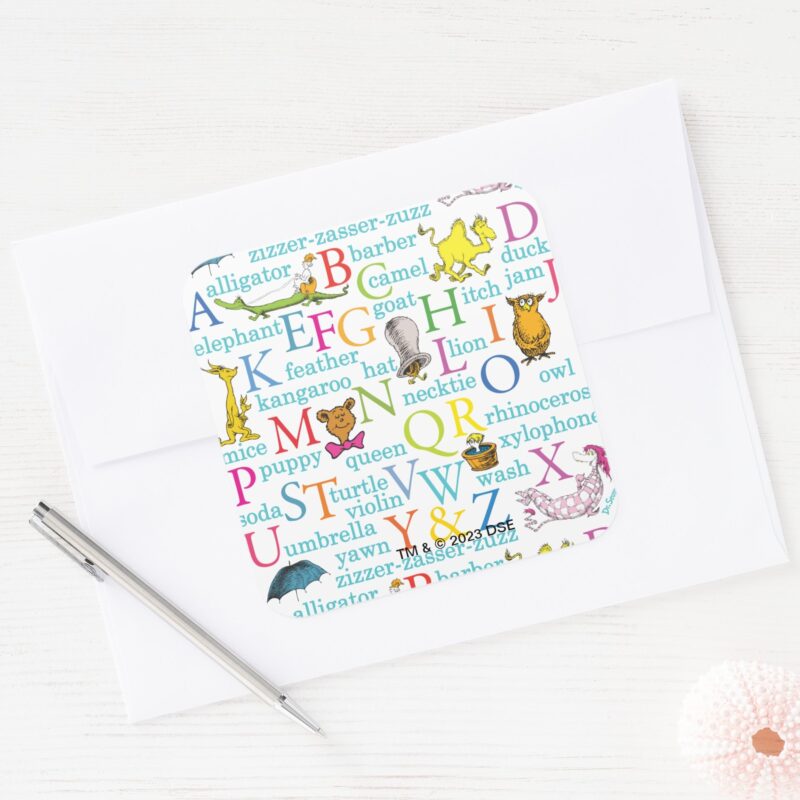 zizzer-zasser-zuzz
alligator B barber D
A C camel duck
elephant E F G goat H itch jam J
K feather hat L lion I
kangaroo N necktie O owl
mice M Q R rhinoceros
P puppy queen xylophone
soda S T turtle V W wash X
violin
U umbrella Y & Z
yawn
Dr. Seuss
TM & © 2023 DSE
zizzer-zasser-zuzz
alligator B barber D